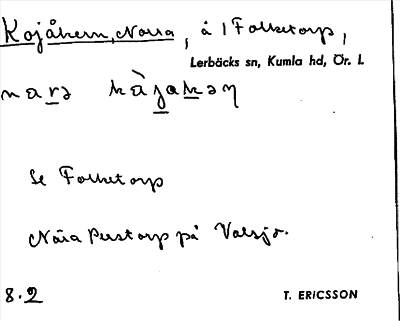 Kojåkern, Norra, å 1 Folketorp,
Lerbäcks sn, Kumla hd, Ör. l.
Se Folketorp
Nära Perstorp på Valsjö.
8.2
T. ERICSSON